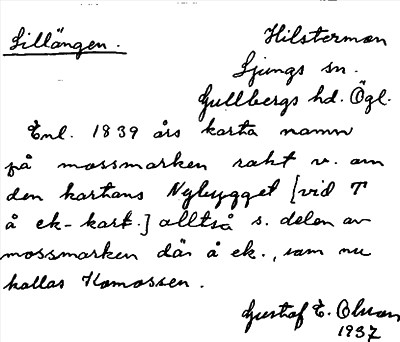 Lillängen.
Hilsterman
Ljungs sn.
Gullbergs hd. Ögl.
Enl. 1839 års karta namn
på mossmarken rakt v. om
den kartans Nybygget [vid T
å ek-kart.] alltså s. delen av
mossmarken där å ek., som nu
kallas Komossen.
Gustaf E. Olsson
1937